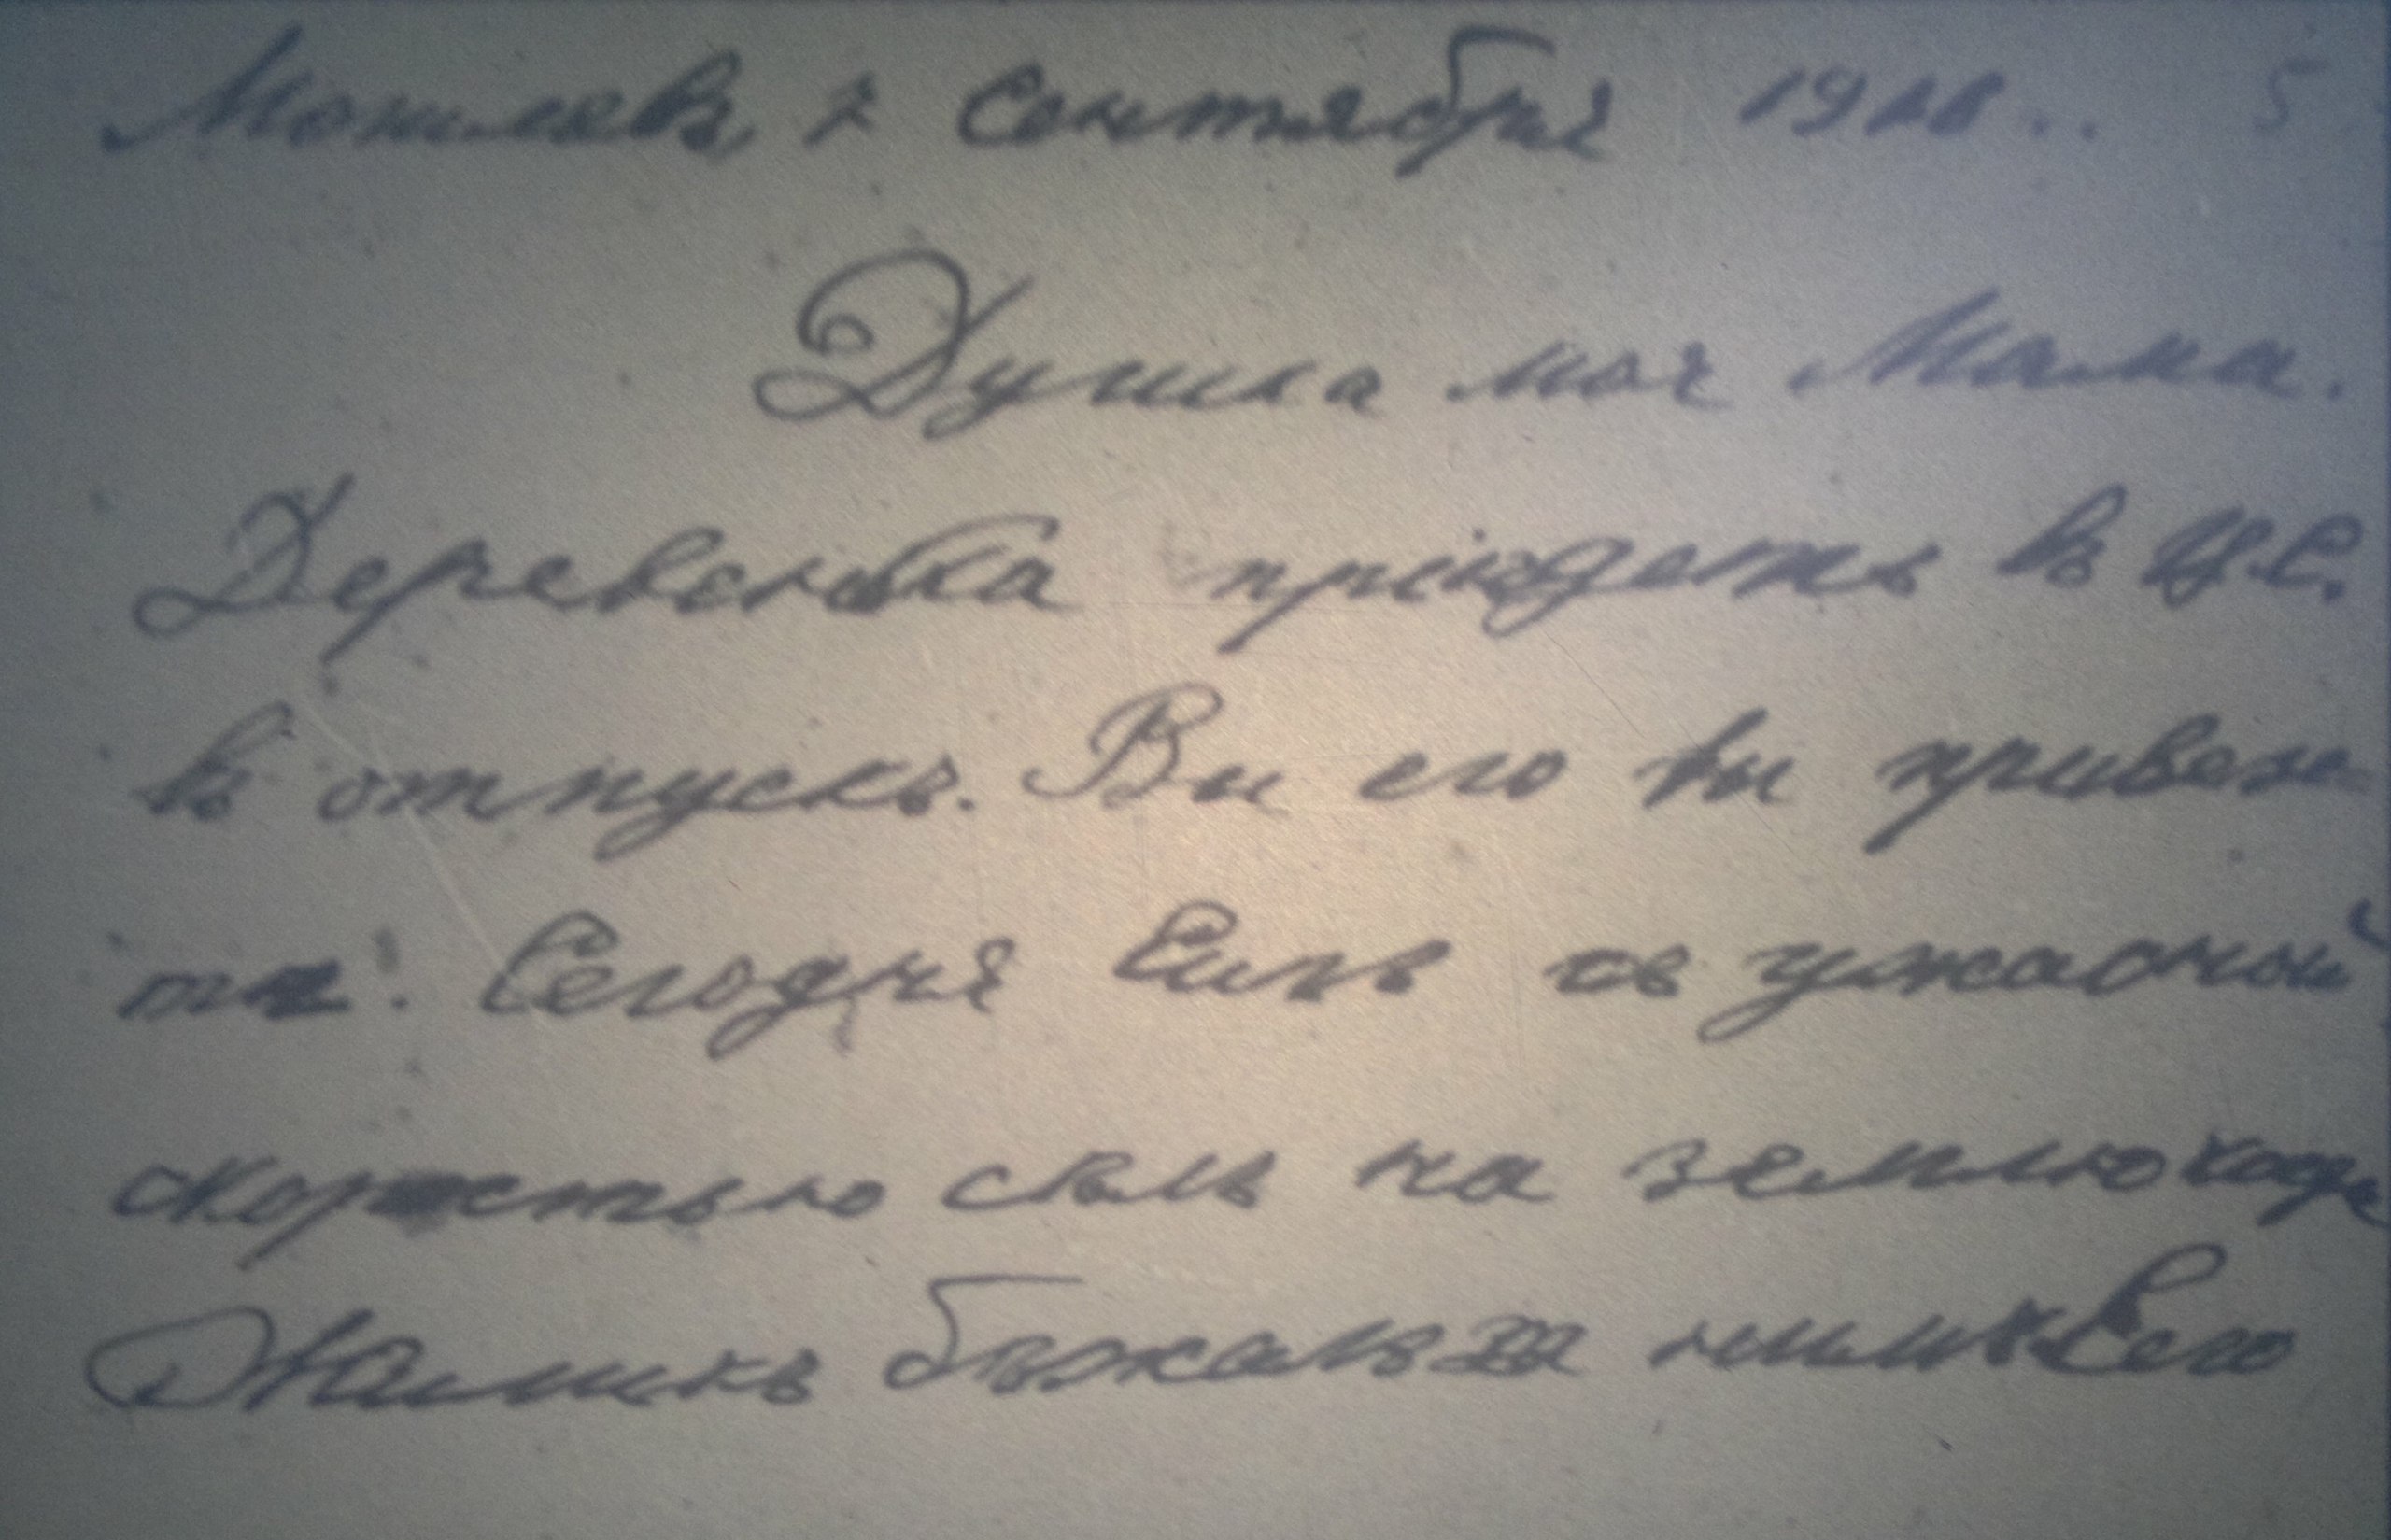 Могилевъ, 2 Сентября 1916.. 5
Душка моя Мама.
Деревенька пріѣдетъ въ Ц.С.
въ отпускъ. Вы его вы привезе
те. Сегодня Ѣилъ съ ужасной
скоростью на землю
Жоликъ бѣжалъ за нимъ Его